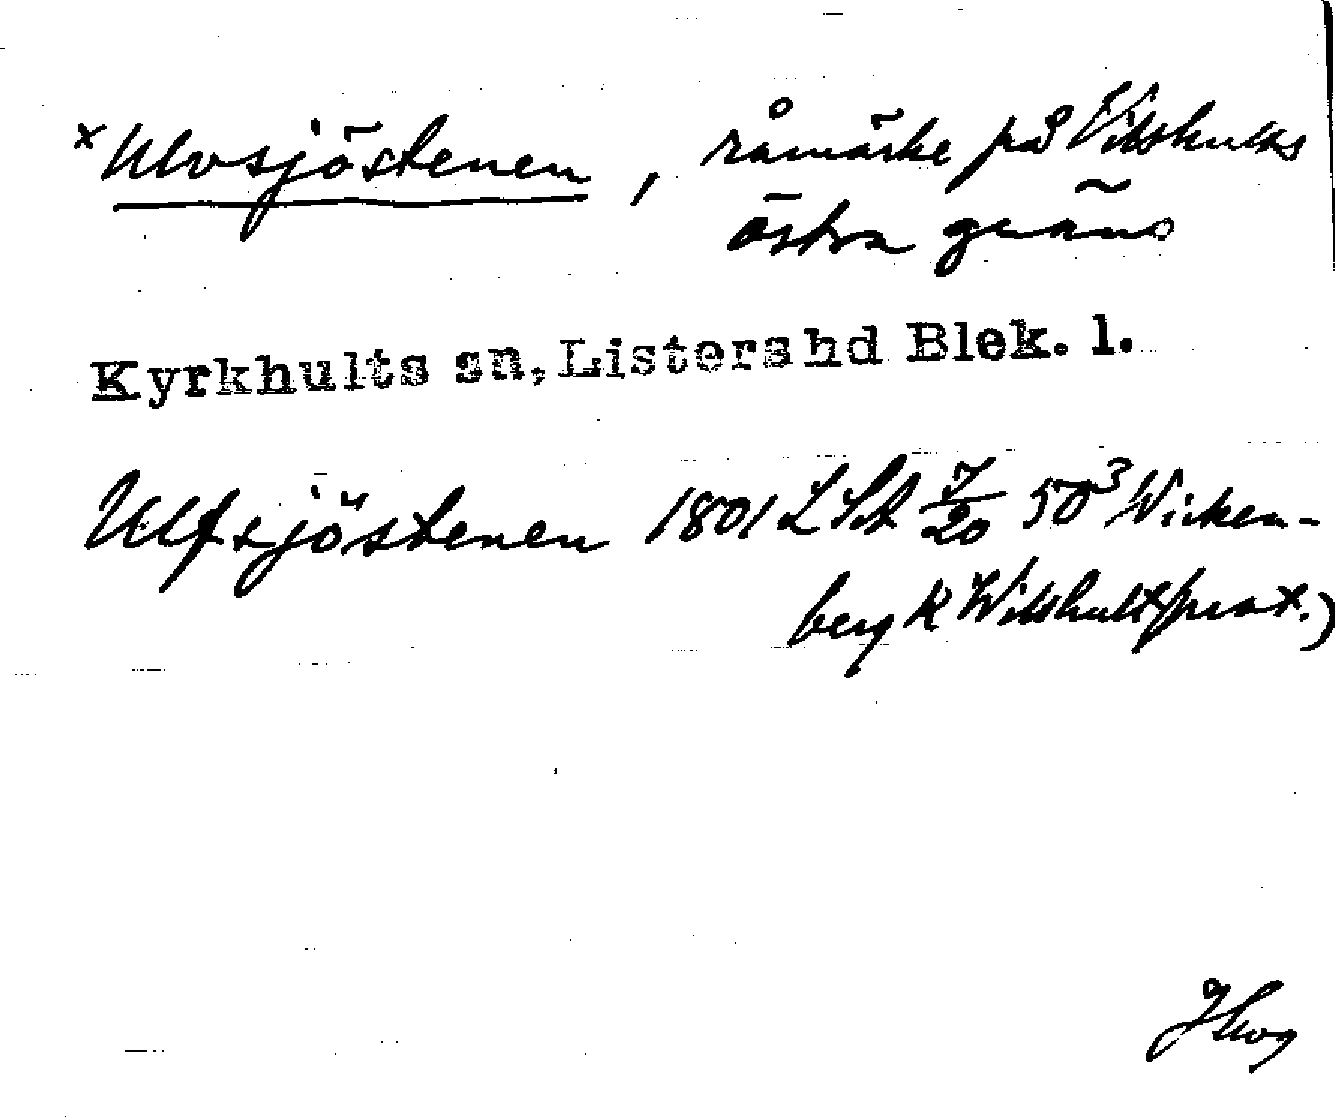 ×Ulvsjöstenen, råmärke på Vilshults
östra gräns
Kyrkhults sn, Listers hd Blek. l.
Ulfsjöstenen 1801 LSA 7/20 50³ Wirken-
berg K Wilshult prot.)